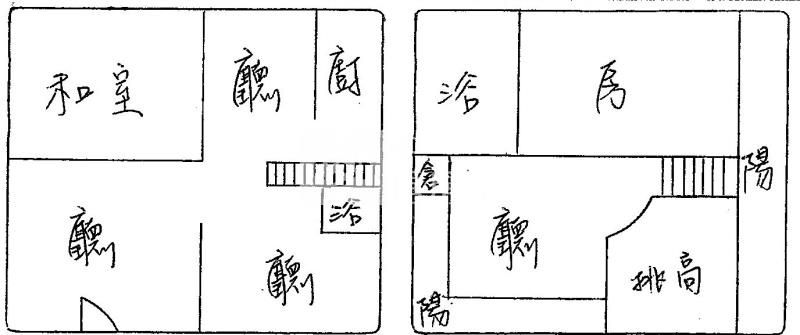 和室
廳
廚
浴
廳
廳
浴
房
倉
陽
廳
挑高
陽